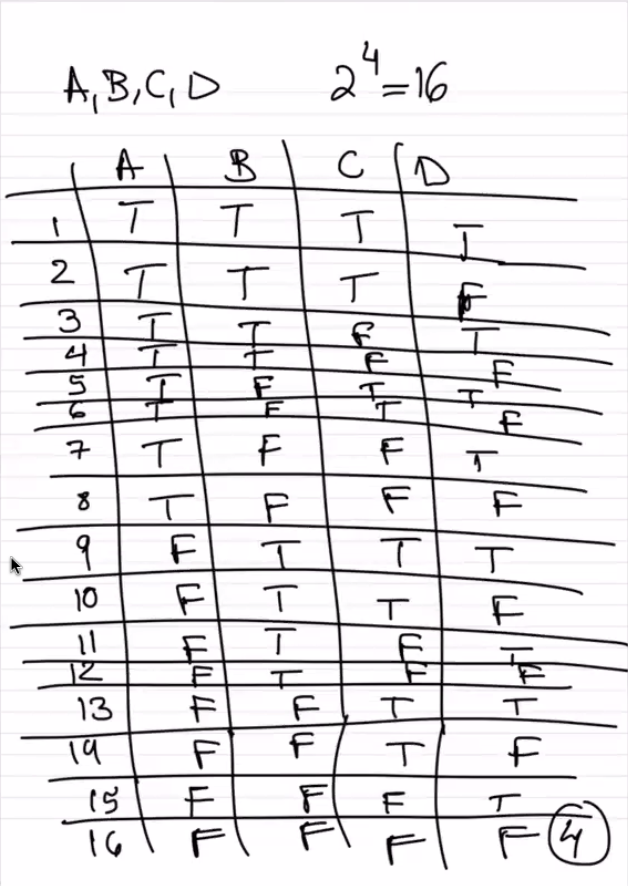 A, B, C, D 2^4=16
A B C D
1 T T T T
2 T T T F
3 T T F T
4 T T F F
5 T F T T
6 T F T F
7 T F F T
8 T F F F
9 F T T T
10 F T T F
11 F T F T
12 F T F F
13 F F T T
14 F F T F
15 F F F T
16 F F F F 4